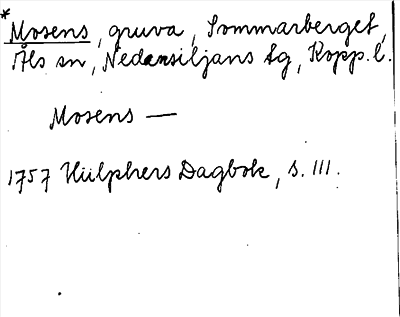 * Mosens, gruva, Sommarberget,
Åls sn, Nedansiljans tg, Kopp. l.
Mosens —
1757 Hülphers Dagbok, s. 111.